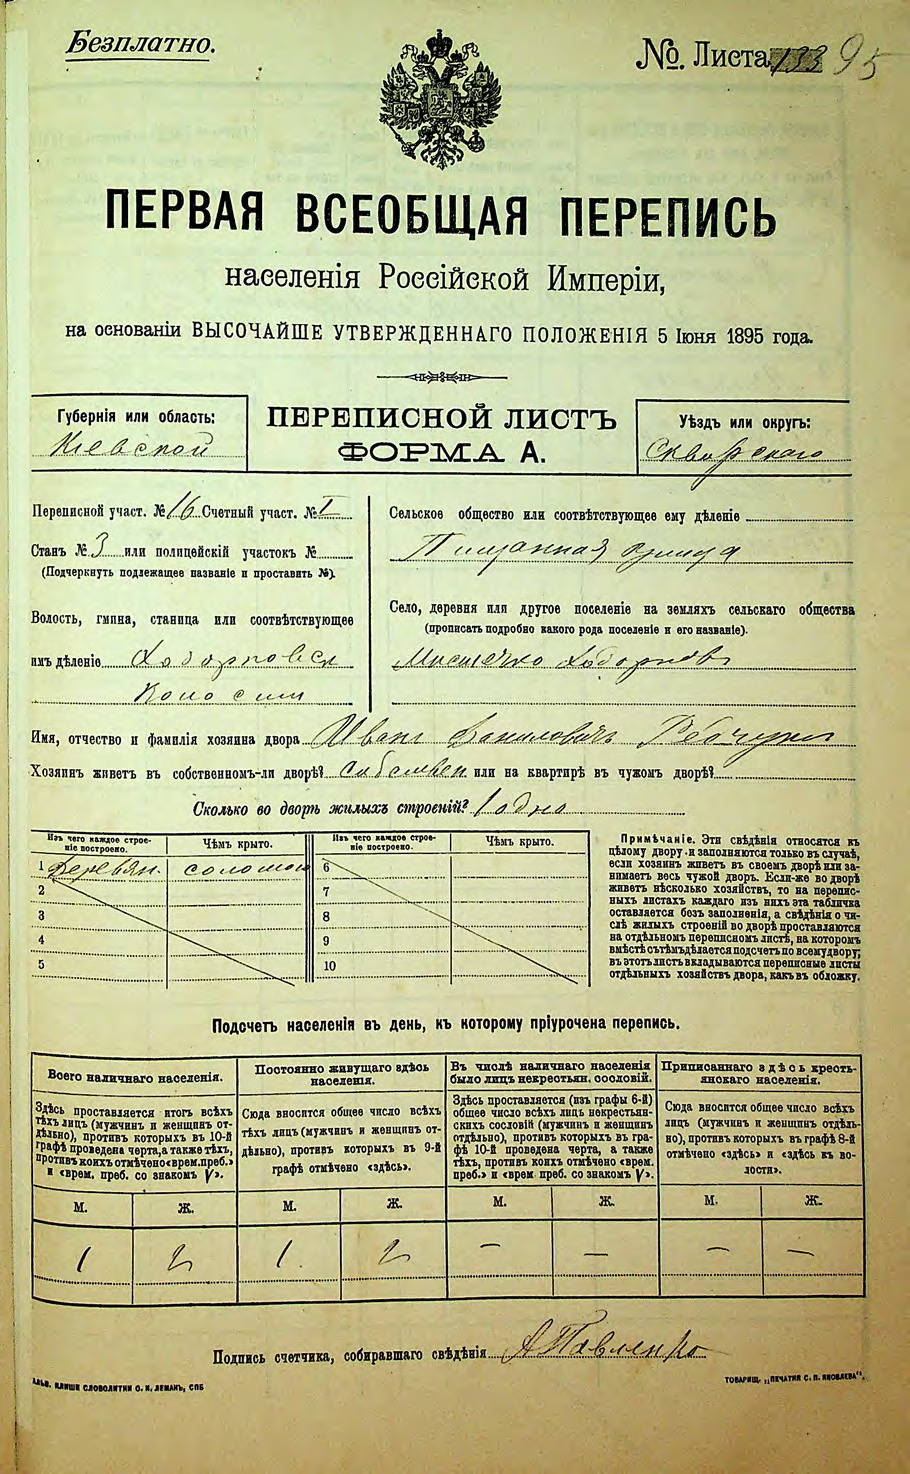 Безплатно.
№. Листа 133 95
ПЕРВАЯ ВСЕОБЩАЯ ПЕРЕПИСЬ
населенія Россійской Имперіи,
на основаніи ВЫСОЧАЙШЕ УТВЕРЖДЕННАГО ПОЛОЖЕНІЯ 5 Іюня 1895 года.
Губернія или область:
Кіевской
ПЕРЕПИСНОЙ ЛИСТЪ
ФОРМА А.
Уѣздъ или округъ:
Сквирскаго
Переписной участ. № 16 Счетный участ. № I
Станъ № 3 или полицейскій участокъ №
(Подчеркнуть подлежащее названіе и проставить №).
Волость, гмина, станица или соотвѣтствующее
имъ дѣленіе Ходорковск
Сельское общество или соотвѣтствующее ему дѣленіе
Село, деревня или другое поселеніе на земляхъ сельскаго общества
(прописать подробно какого рода поселеніе и его названіе).
Мѣстечко Ходорковъ
Имя, отчество и фамилія хозяина двора Иванъ Даниловичъ
Хозяинъ живетъ въ собственномъ-ли дворѣ? собствен или на квартирѣ въ чужомъ дворѣ?
Сколько во дворѣ жилыхъ строеній? 1 одно
Изъ чего каждое строе-
ніе построено.
Чѣмъ крыто.
1 Деревян. соломою
2
3
4
5
Изъ чего каждое строе-
ніе построено.
Чѣмъ крыто.
6
7
8
9
10
Примѣчаніе. Эти свѣдѣнія относятся къ
цѣлому двору и заполняются только въ случаѣ,
если хозяинъ живетъ въ своемъ дворѣ или за-
нимаетъ весь чужой дворъ. Если-же во дворѣ
живетъ нѣсколько хозяйствъ, то на перепис-
ныхъ листахъ каждаго изъ нихъ эта табличка
оставляется безъ заполненія, а свѣдѣнія о чи-
слѣ жилыхъ строеній во дворѣ проставляются
на отдѣльномъ переписномъ листѣ, на которомъ
вмѣстѣ съ тѣмъ дѣлается подсчетъ по всему двору;
въ этотъ листъ вкладываются переписные листы
отдѣльныхъ хозяйствъ двора, какъ въ обложку.
Подсчетъ населенія въ день, къ которому пріурочена перепись.
Всего наличнаго населенія.
Здѣсь проставляется итогъ всѣхъ
тѣхъ лицъ (мужчинъ и женщинъ от-
дѣльно), противъ которыхъ въ 10-й
графѣ проведена черта, а также тѣхъ,
противъ коихъ отмѣчено «врем. преб.»
и «врем. преб. со знакомъ V».
М. Ж.
1 2
Постоянно живущаго здѣсь
населенія.
Сюда вносится общее число всѣхъ
тѣхъ лицъ (мужчинъ и женщинъ от-
дѣльно), противъ которыхъ въ 9-й
графѣ отмѣчено «здѣсь».
М. Ж.
1. 2
Въ числѣ наличнаго населенія
было лицъ некрестьян. сословій.
Здѣсь проставляется (изъ графы 6-й)
общее число всѣхъ лицъ некрестьян-
скихъ сословій (мужчинъ и женщинъ
отдѣльно), противъ которыхъ въ гра-
фѣ 10-й проведена черта, а также
тѣхъ, противъ коихъ отмѣчено «врем.
преб.» и «врем. преб. со знакомъ V».
М. Ж.
— —
Приписаннаго здѣсь кресть-
янскаго населенія.
Сюда вносится общее число всѣхъ
лицъ (мужчинъ и женщинъ отдѣль-
но), противъ которыхъ въ графѣ 8-й
отмѣчено «здѣсь» и «здѣсь къ во-
лости».
М. Ж.
— —
Подпись счетчика, собиравшаго свѣдѣнія А Павленко
АЛЬВ. КЛИШЕ СЛОВОЛИТНИ О. И. ЛЕМАНЪ, СПБ
ТОВАРИЩ. „ПЕЧАТНЯ С. П. ЯКОВЛЕВА“.